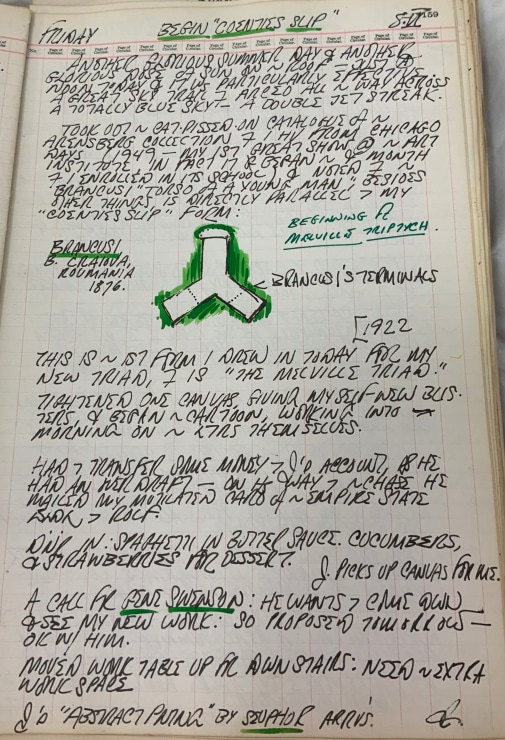 FRIDAY BEGIN "COENTIES SLIP" 159
ANOTHER GLORIOUS SUMMER DAY & ANOTHER
GLORIOUS DOSE OF SUN ON ~ ROOF — JUST @
NOON TODAY & THIS PARTICULARLY EFFECTIVE
A GREAT SKY TRAIL ARCED ALL ~ WAY ACROSS
A TOTALLY BLUE SKY — A DOUBLE JET STREAK.
TOOK OUT ~ CAT-PISSED-ON CATALOGUE OF ~
ARENSBERG COLLECTION FROM CHICAGO
DAYS — 1949 — MY 1ST GREAT SHOW @ ~ ART
INSTITUTE. IN FACT IT BEGAN ~ MONTH
I ENROLLED IN ITS SCHOOL) & NOTED
BRANCUSI "TORSO OF A YOUNG MAN," BESIDES
OTHER THINGS, IS DIRECTLY PARALLEL > MY
"COENTIES SLIP" FORM:
BEGINNING OF
MELVILLE TRIPTYCH.
BRANCUSI
B. CRAIOVA,
ROUMANIA
1876.
BRANCUSI'S TERMINALS
[1922
THIS IS ~ 1ST FORM I DREW IN TODAY FOR MY
NEW TRIAD, IS "THE MELVILLE TRIAD."
TIGHTENED ONE CANVAS, GIVING MYSELF NEW BLIS-
TERS & BEGAN ~ CARTOON, WORKING INTO ~
MORNING ON ~ LTRS THEMSELVES.
HAD > TRANSFER SOME MONEY > J'S ACCOUNT, AS HE
HAD AN OVERDRAFT — ON HIS WAY > ~ CHASE HE
MAILED MY MUTILATED CARD OF ~ EMPIRE STATE
> ROLF.
DINR IN: SPAGHETTI IN BUTTER SAUCE. CUCUMBERS,
& STRAWBERRIES FOR DESSERT.
J. PICKS UP CANVAS FOR ME.
A CALL FR GENE SWENSON: HE WANTS > COME DOWN
& SEE MY NEW WORK: SO PROPOSED TOMORROW —
OK W/ HIM.
MOVED WORK TABLE UP FR DOWNSTAIRS: NEED ~ EXTRA
WORK SPACE
J'S "ABSTRACT PNTING" BY SEUPHOR ARRVS.